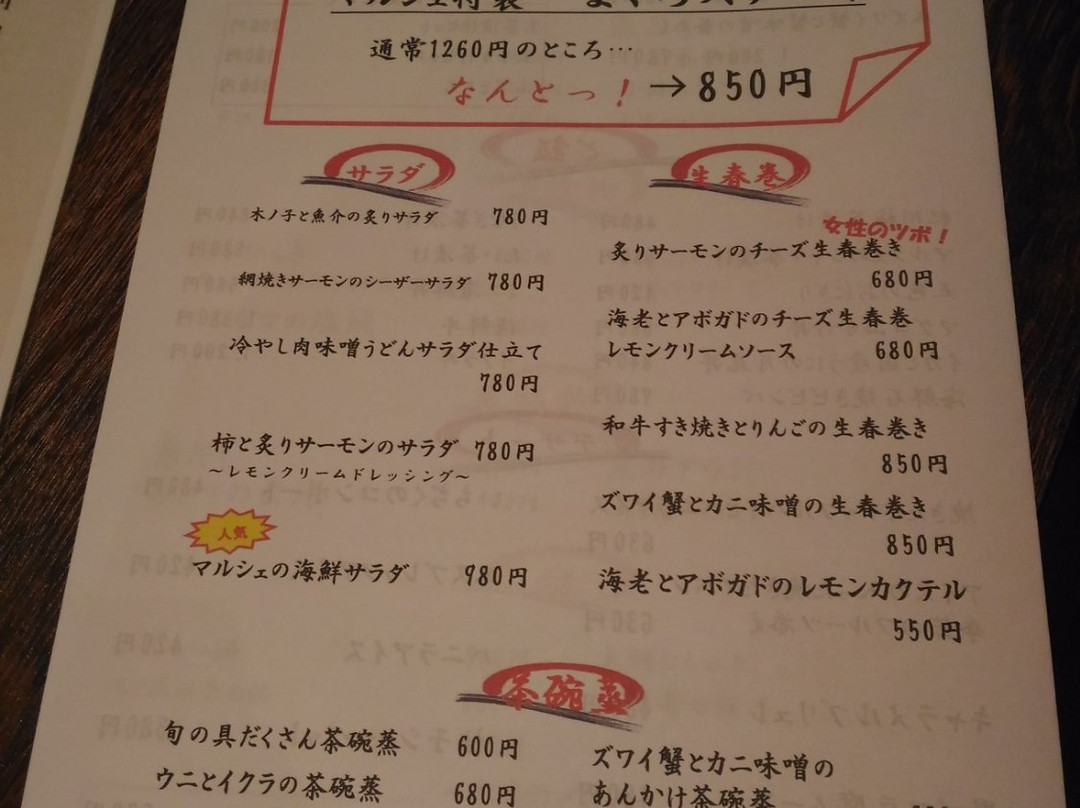 マルシェ特製
通常1260円のところ…
なんとっ！→850円
サラダ
木ノ子と魚介の炙りサラダ 780円
網焼きサーモンのシーザーサラダ 780円
冷やし肉味噌うどんサラダ仕立て
780円
柿と炙りサーモンのサラダ 780円
～レモンクリームドレッシング～
人気
マルシェの海鮮サラダ 980円
生春巻
女性のツボ！
炙りサーモンのチーズ生春巻き
680円
海老とアボガドのチーズ生春巻
レモンクリームソース 680円
和牛すき焼きとりんごの生春巻き
850円
ズワイ蟹とカニ味噌の生春巻き
850円
海老とアボガドのレモンカクテル
550円
茶碗蒸
旬の具だくさん茶碗蒸 600円
ウニとイクラの茶碗蒸 680円
ズワイ蟹とカニ味噌の
あんかけ茶碗蒸